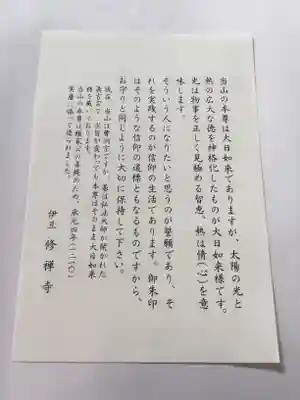 当山の本尊は大日如来でありますが、太陽の光と
熱の広大な徳を神格化したものが大日如来様です。
光は物事を正しく見極める智恵、熱は情(心)を意
味します。
そういう人になりたいと思うのが誓願であり、そ
れを実践するのが信仰の生活であります。御朱印
はそのような信仰の道標ともなるものですから、
お守りと同じように大切に保持して下さい。
現在、当山は曹洞宗ですが、昔は弘法大師が開かれた
真言宗で、宗旨が変わっても本尊はそのまま大日如来
様を戴いております。
当山の本尊は頼家公の菩提のため、承元四年(一二一〇)
実慶に依って造られました。
伊豆 修禅寺